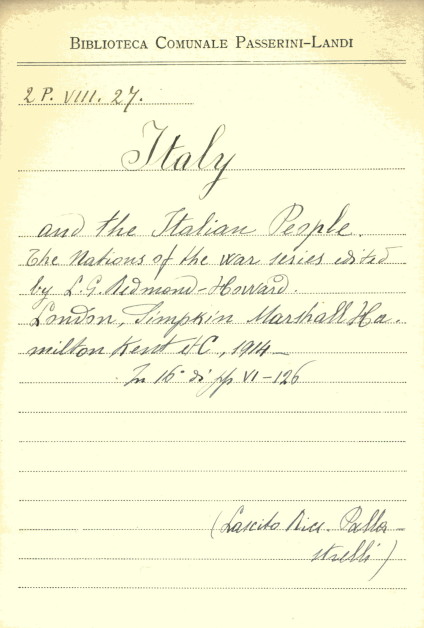 BIBLIOTECA COMUNALE PASSERINI-LANDI
2 P. VIII. 27.
Italy
and the Italian People.
The Nations of the war series edited
by L. G. Redmond-Howard.
London, Simpkin Marshall Ha-
milton Kent & C, 1914 -
In 16° di pp VI-126
(Lascito Ricc. Palla-
strelli)